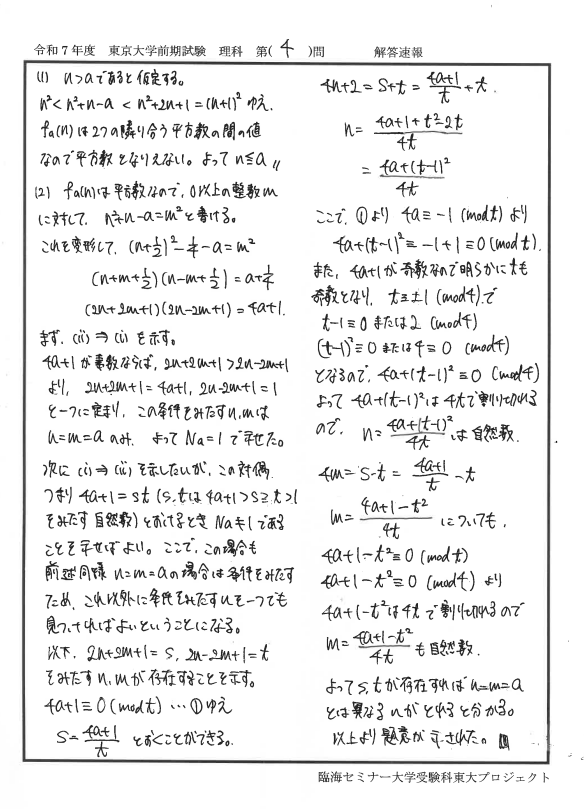 令和7年度 東京大学前期試験 理科 第( 4 )問 解答速報
(1) n>aであると仮定する。
n²< n²+n-a < n²+2n+1 = (n+1)² ゆえ、
fa(n)は2つの隣り合う平方数の間の値
なので平方数となりえない。よって n≦a 〃
(2) fa(n)は平方数なので、0以上の整数m
に対して、n²+n-a=m² と書ける。
これを変形して、(n+½)²-¼-a=m²
(n+m+½)(n-m+½) = a+¼
(2n+2m+1)(2n-2m+1) = 4a+1.
まず、(ii) ⇒ (i) を示す。
4a+1 が素数ならば、2n+2m+1 > 2n-2m+1
より、2n+2m+1 = 4a+1, 2n-2m+1 = 1
と一つに定まり、この条件をみたすn,mは
n=m=a のみ. よって Na=1 で示せた。
次に (i) ⇒ (ii) を示したいが、この対偶
つまり 4a+1 = st (s,tは 4a+1>s≧t>1
をみたす自然数) とおけるとき Na≠1である
ことを示せばよい。ここで、この場合も
前述同様 n=m=a の場合は条件をみたす
ため、これ以外に条件をみたすnを一つでも
見つければよいということになる。
以下、2n+2m+1=s, 2n-2m+1=t
をみたすn,mが存在することを示す。
4a+1≡0 (mod t) … ① ゆえ
s = (4a+1)/t とおくことができる。
4n+2 = s+t = (4a+1)/t + t.
n = (4a+1+t²-2t)/4t
= (4a+(t-1)²)/4t
ここで、①より 4a≡-1 (mod t) より
4a+(t-1)² ≡ -1+1 ≡ 0 (mod t).
また、4a+1が奇数なので明らかにtも
奇数となり、t≡±1 (mod 4) で
t-1≡0 または 2 (mod 4)
(t-1)²≡0 または 4≡0 (mod 4)
となるので、4a+(t-1)²≡0 (mod 4)
よって 4a+(t-1)²は4tで割り切れる
ので、n = (4a+(t-1)²)/4t は自然数.
4m = s-t = (4a+1)/t - t
m = (4a+1-t²)/4t についても,
4a+1-t²≡0 (mod t)
4a+1-t²≡0 (mod 4) より
4a+1-t²は4tで割り切れるので
m = (4a+1-t²)/4t も自然数.
よってs,tが存在すれば n=m=a
とは異なるnがとれると分かる。
以上より題意が示された。
臨海セミナー大学受験科東大プロジェクト